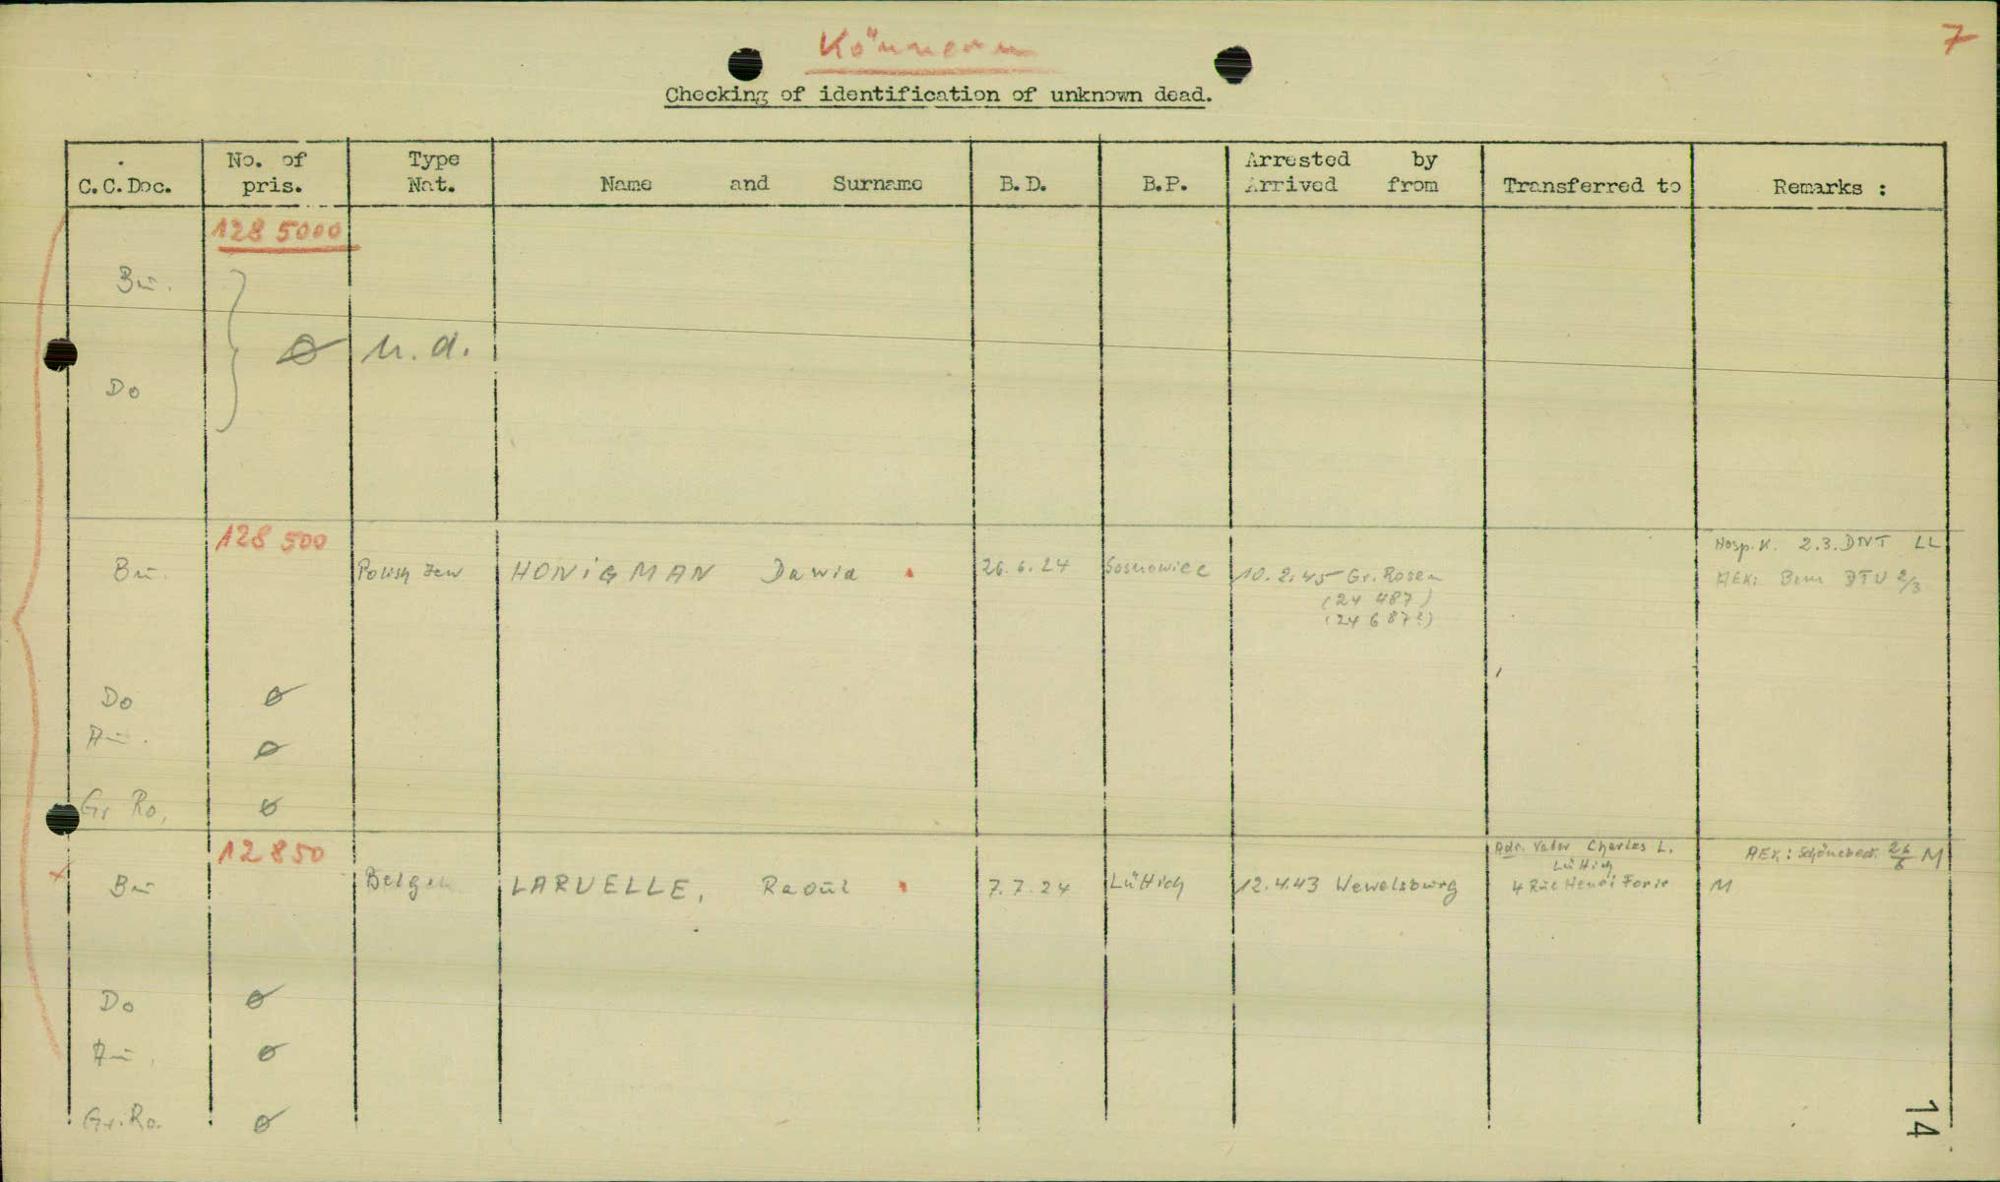 Könnern
7
Checking of identification of unknown dead.
C.C.Doc. No. of pris. Type Nat. Name and Surname B.D. B.P. Arrested by Arrived from Transferred to Remarks :
128 5000
Bu.
Ø n.d.
Do
128 500
Bu. Polish Jew HONiGMAN Dawid 26.6.24 Sosnowiec 10.2.45 Gr. Rosen
(24 487)
(24 687?)
Hosp. K. 2.3. DNT LL
AEK: Bem DTU 2/3
Do Ø
Au. Ø
Gr Ro. Ø
12850
x Bu Belgen LARUELLE, Raoul 7.7.24 Lüttich 12.4.43 Wewelsburg
Adr. Vater Charles L.
Lüttich
4 Rue Henri Forir
AEK: Schönebeck 26/6 M
M
Do Ø
Au. Ø
Gr.Ro. Ø
14